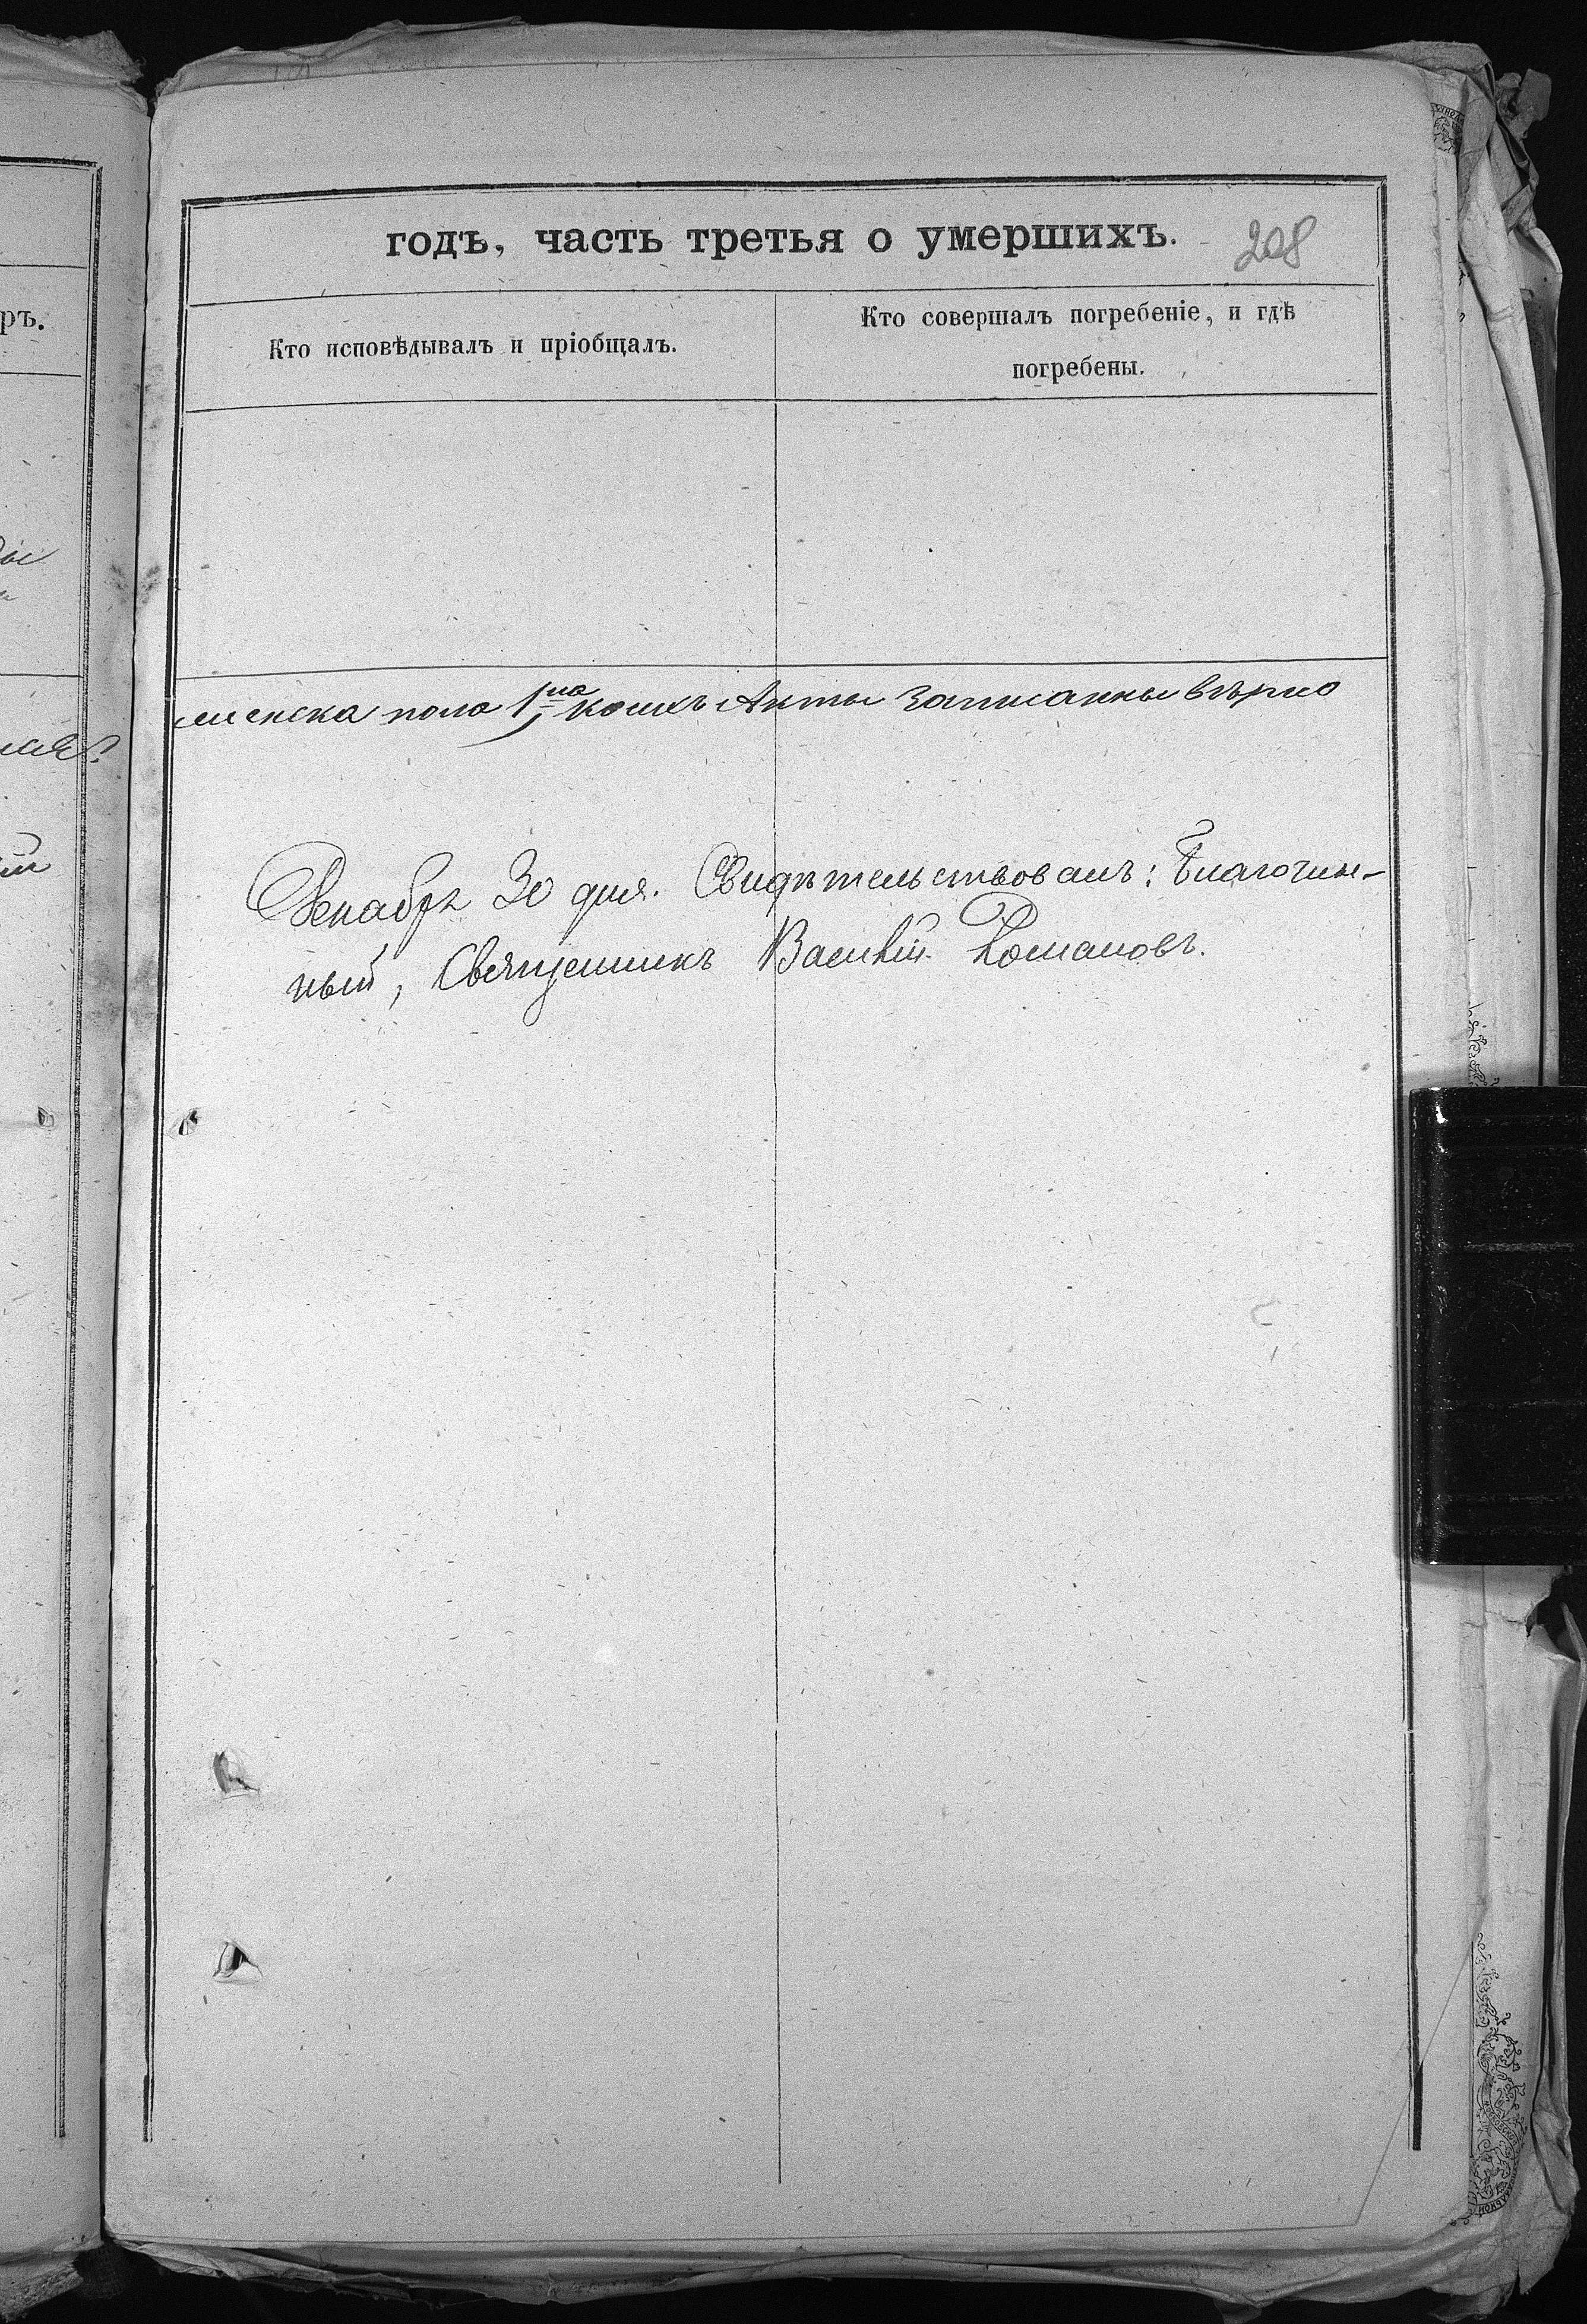 годъ, часть третья о умершихъ.
208
Кто исповѣдывалъ и пріобщалъ.
Кто совершалъ погребеніе, и гдѣ
погребены.
ръ.
женска пола 1на Акты записанны вѣрно
Декабря 30 дня. Свидѣтельствовалъ: Благочин-
ный, Священникъ Василій Романовъ.